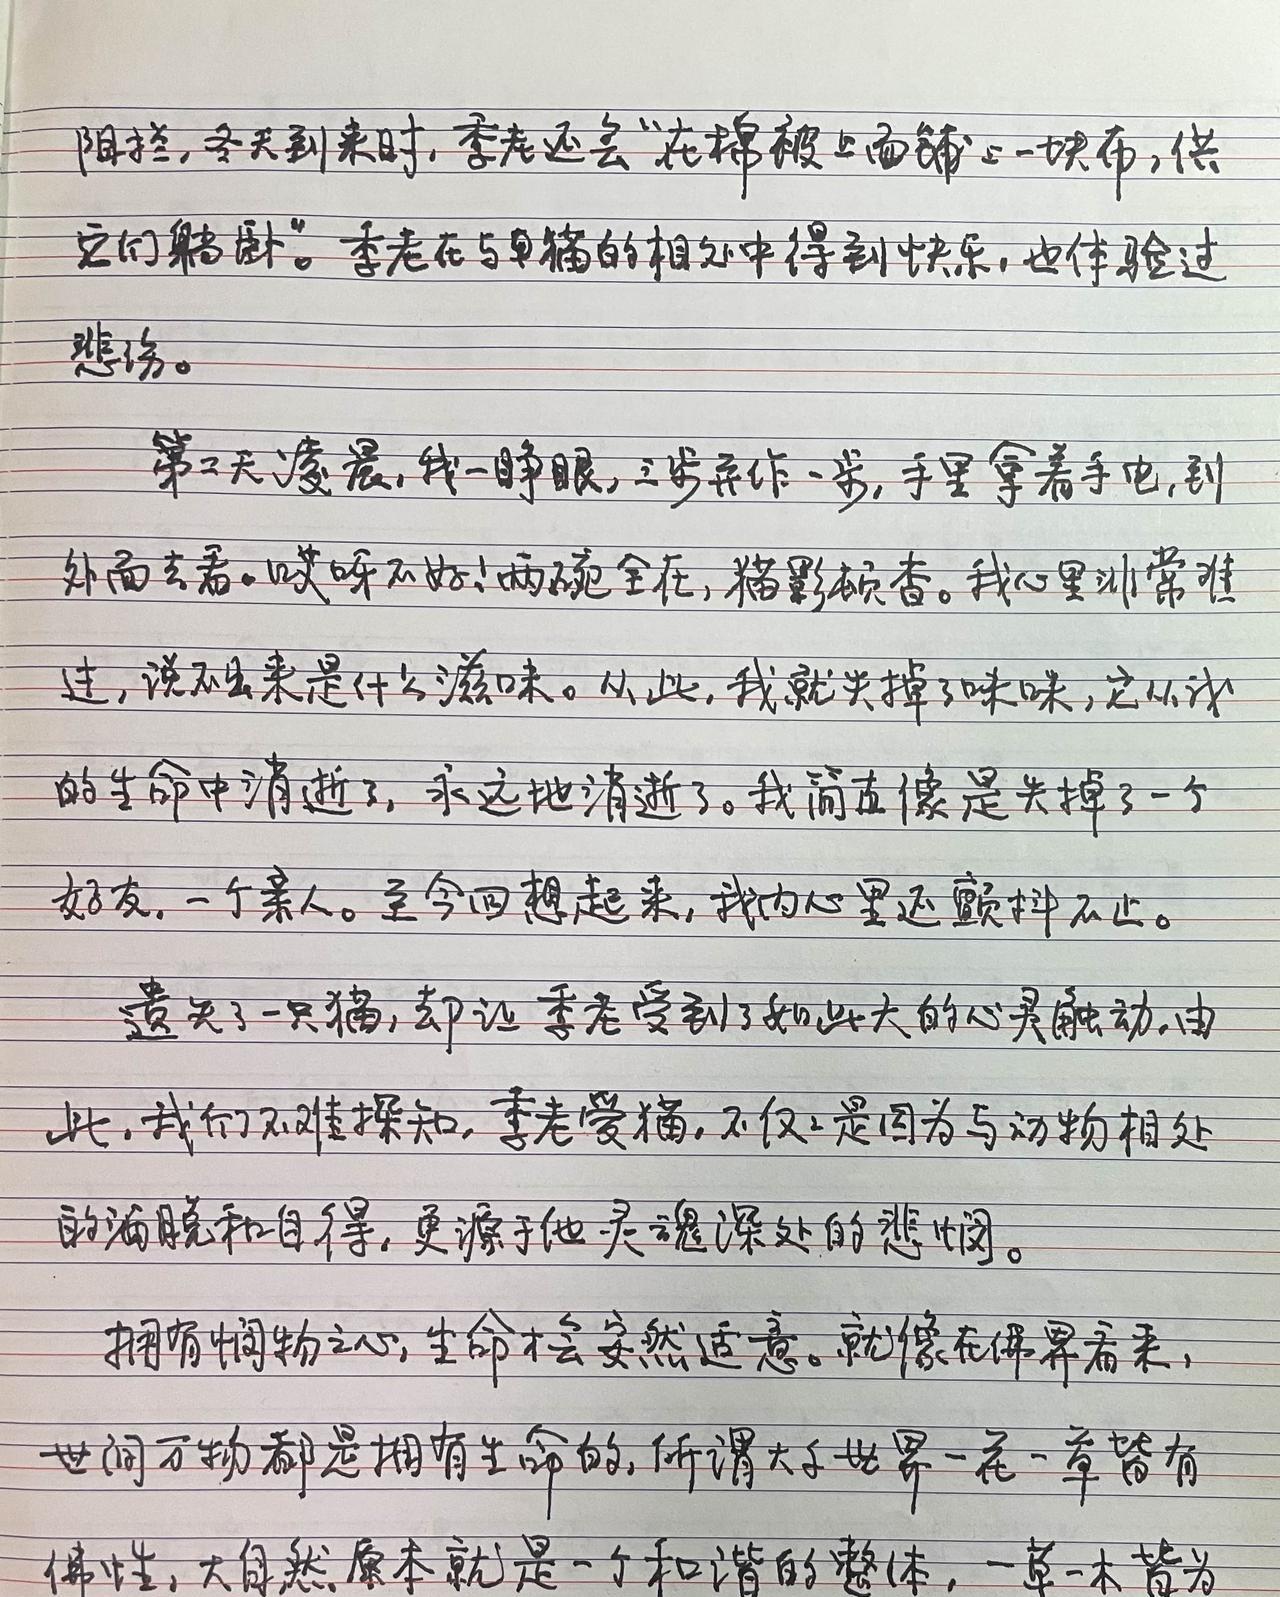 阻拦，冬天到来时，季老还会“在棉被上面铺上一块布，供
它们躺卧”。季老在与单猫的相处中得到快乐，也体验过
悲伤。
第二天凌晨，我一睁眼，三步并作一步，手里拿着手电，到
外面去看。哎呀不好！两碗全在，猫影顿杳。我心里非常难
过，说不出来是什么滋味。从此，我就失掉了咪咪，它从我
的生命中消逝了，永远地消逝了。我简直像是失掉了一个
好友，一个亲人。至今回想起来，我内心里还颤抖不止。
遗失了一只猫，却让季老受到了如此大的心灵触动。由
此，我们不难探知，季老爱猫，不仅仅是因为与动物相处
的洒脱和自得，更源于他灵魂深处的悲悯。
拥有悯物之心，生命才会安然适意。就像在佛界看来，
世间万物都是拥有生命的，所谓大千世界一花一草皆有
佛性，大自然原本就是一个和谐的整体，一草一木皆为